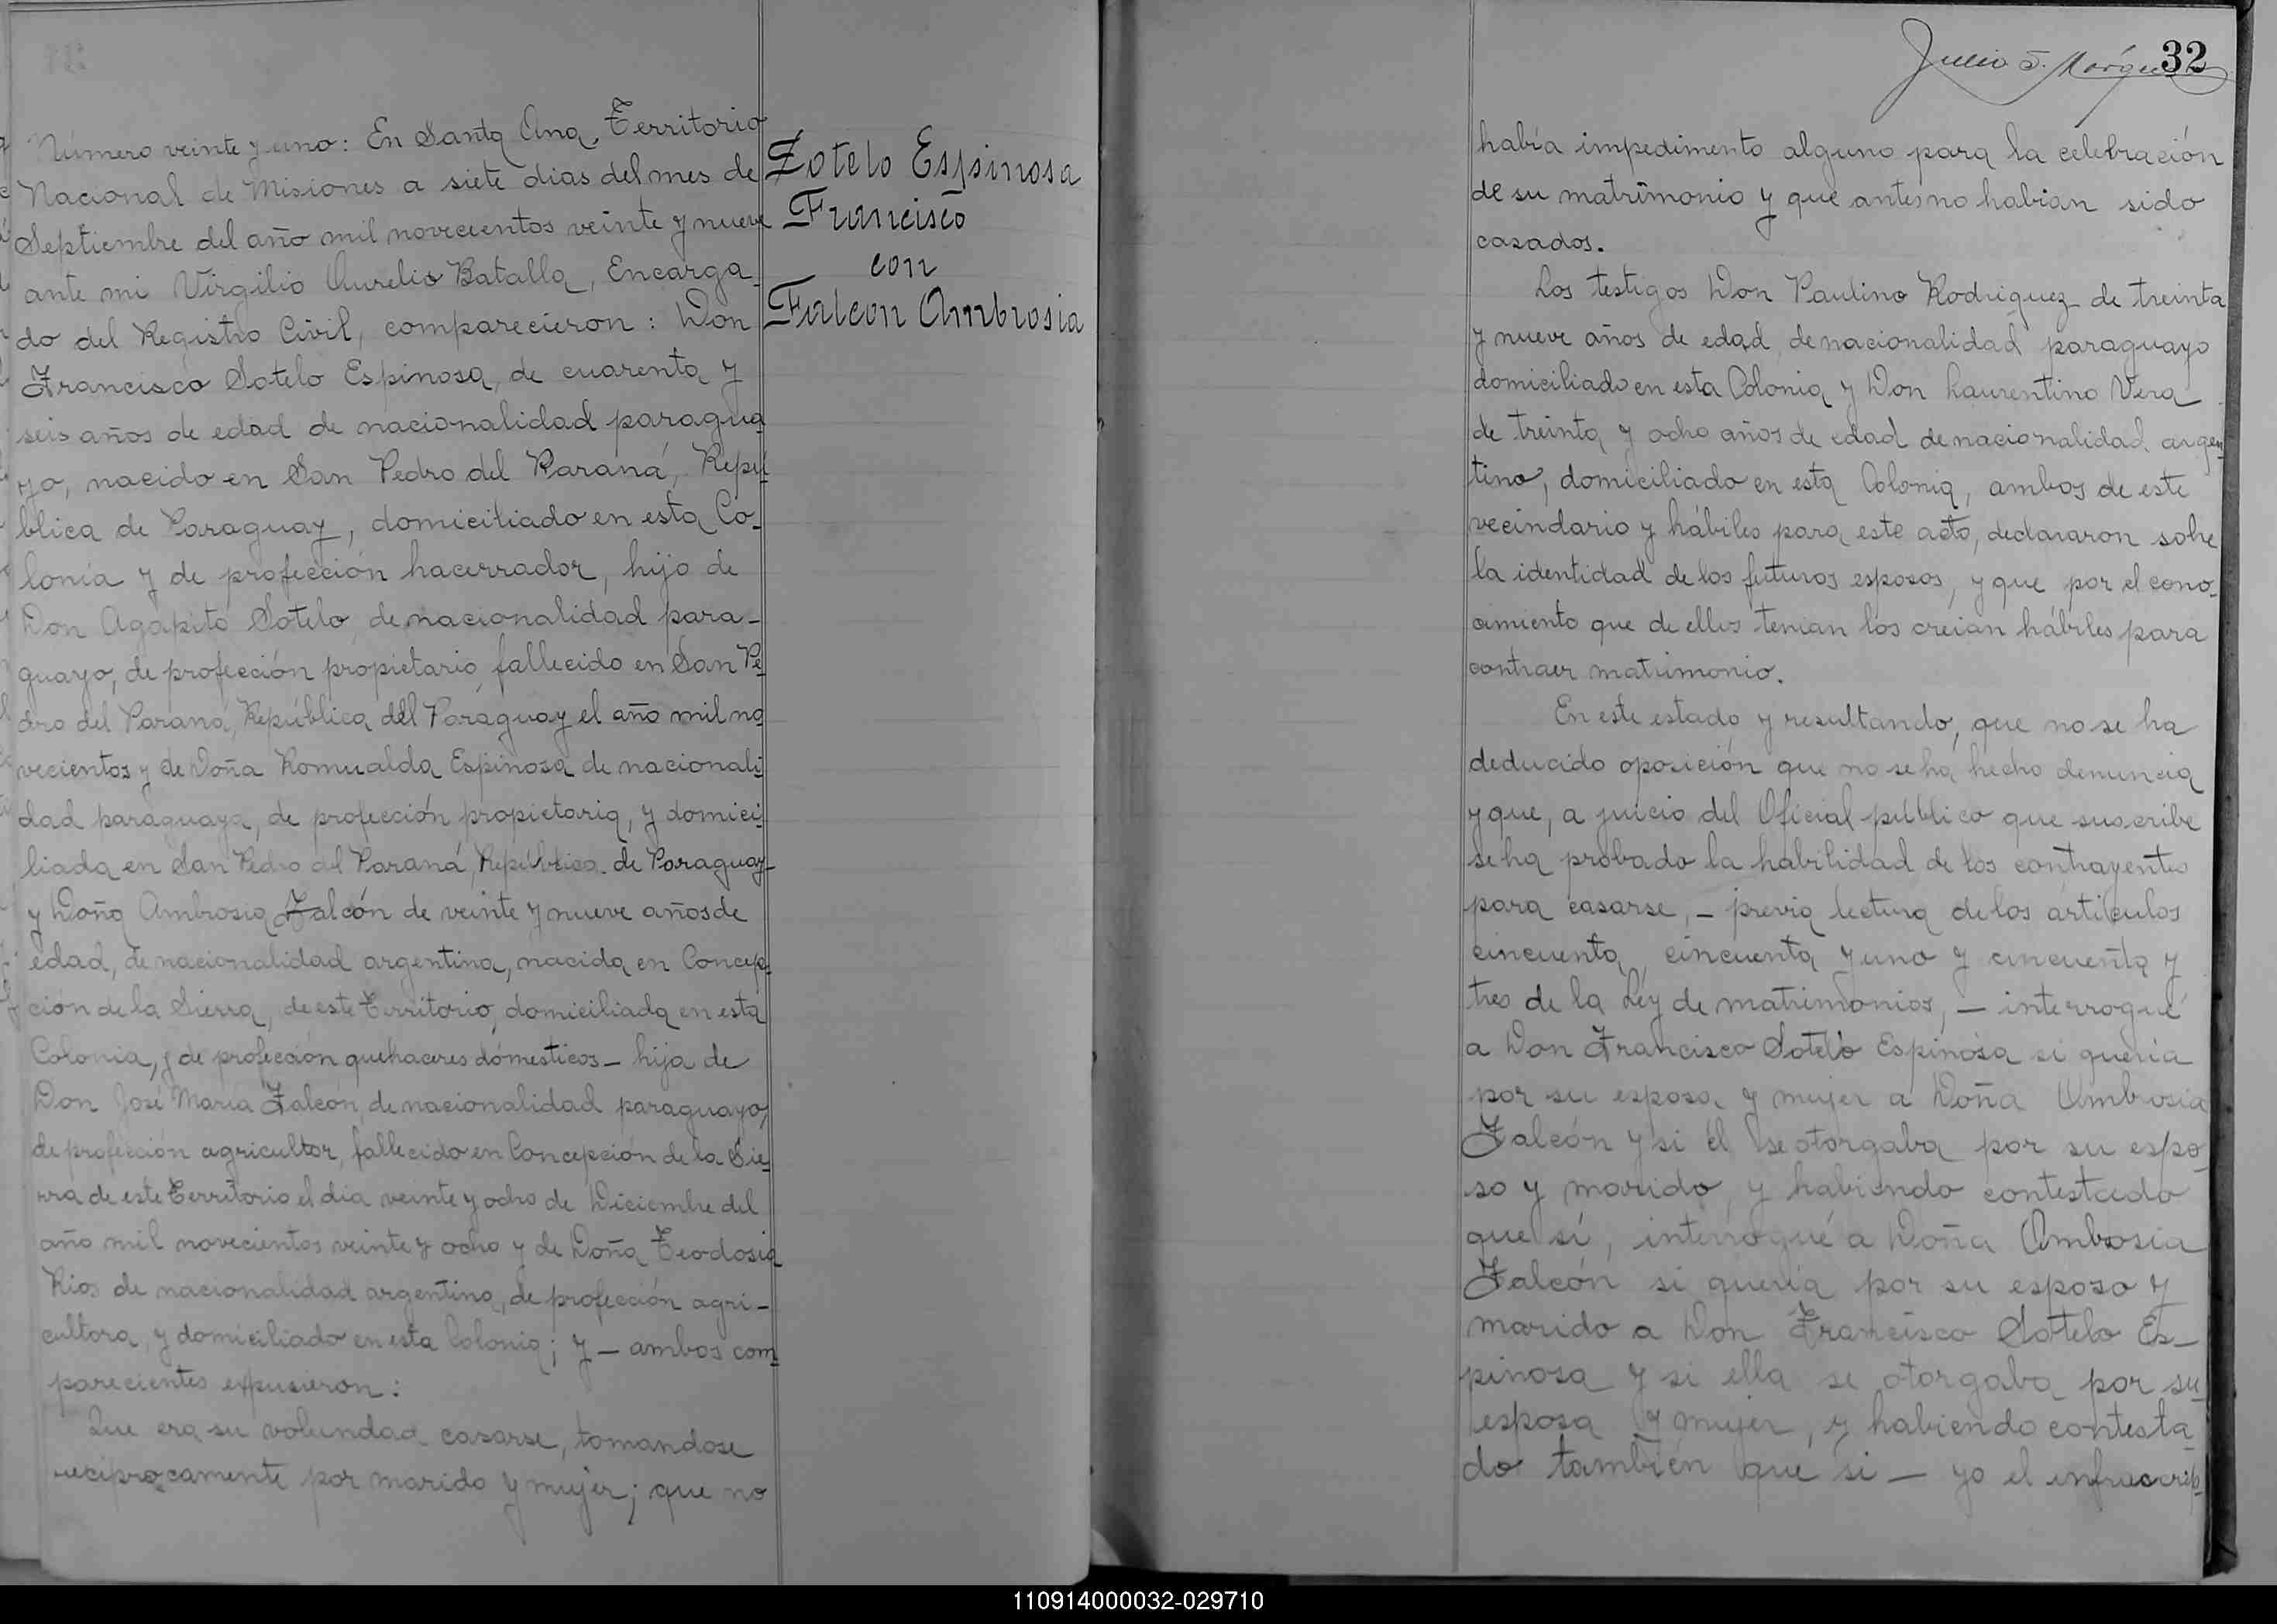 Número veinte y uno: En Santa Ana, Territorio
Nacional de Misiones a siete dias del mes de
Septiembre del año mil novecientos veinte y nueve
ante mi Virgilio Aurelio Batalla, Encarga_
do del Registro Civil, comparecieron: Don
Francisco Sotelo Espinosa, de cuarenta y
seis años de edad de nacionalidad paragua
yo, nacido en San Pedro del Paraná, Repú
blica de Paraguay, domiciliado en esta Co_
lonia y de profección hacerrador, hijo de
Don Agapito Sotelo, de nacionalidad para-
guayo, de profección propietario, fallecido en San Pe
dro del Paraná, República del Paraguay el año mil no
vecientos y de Doña Romualda Espinosa de nacionali
dad paraguaya, de profección propietaria, y domici
liada en San Pedro del Paraná, República de Paraguay
y Doña Ambrosia Falcón de veinte y nueve años de
edad, de nacionalidad argentina, nacida en Concep
ción de la Sierra, de este Territorio, domiciliada en esta
Colonia, y de profeccion quehaceres dómesticos_ hija de
Don José María Falcón, de nacionalidad paraguayo,
de profección agricultor, fallecido en Concepción de la Sie
rra de este Territorio el dia veinte y ocho de Diciembre del
año mil novecientos veinte y ocho y de Doña Teodosia
Rios de nacionalidad argentina, de profección agri-
cultora, y domiciliado en esta Colonia; y_ ambos com
parecientes expusieron:
Que era su volundad casarse, tomandose
reciprocamente por marido y mujer; que no
Zotelo Espinosa
Francisco
con
Falcon Ambrosia
Julio S. Márquez
32
había impedimento alguno para la celebración
de su matrimonio y que antes no habian sido
casados.
Los testigos Don Paulino Rodriguez de treinta
y nueve años de edad, de nacionalidad paraguayo
domiciliado en esta Colonia y Don Laurentino Vera
de treinta y ocho años de edad de nacionalidad argen
tino, domiciliado en esta Colonia, ambos de este
vecindario y hábiles para este acto, declararon sobre
la identidad de los futuros esposos, y que por el cono_
cimiento que de ellos tenian los creian hábiles para
contraer matrimonio.
En este estado y resultando, que no se ha
deducido oposición que no se ha hecho denuncia
y que, a juicio del Oficial público que suscribe
se ha probado la habilidad de los contrayentes
para casarse,_ previa lectura de los artículos
cincuenta, cincuenta y uno y cincuenta y
tres de la Ley de matrimonios,_ interrogué
a Don Francisco Sotelo Espinosa si quería
por su esposa y mujer a Doña Ambrosia
Falcón y si él se otorgaba por su espo_
so y marido, y habiendo contestado
que sí, interrogué a Doña Ambrosia
Falcón si quería por su esposo y
marido a Don Francisco Sotelo Es_
pinosa y si ella se otorgaba por su
esposa y mujer, y habiendo contesta_
do también que si_ yo el infrascrip_
110914000032-029710